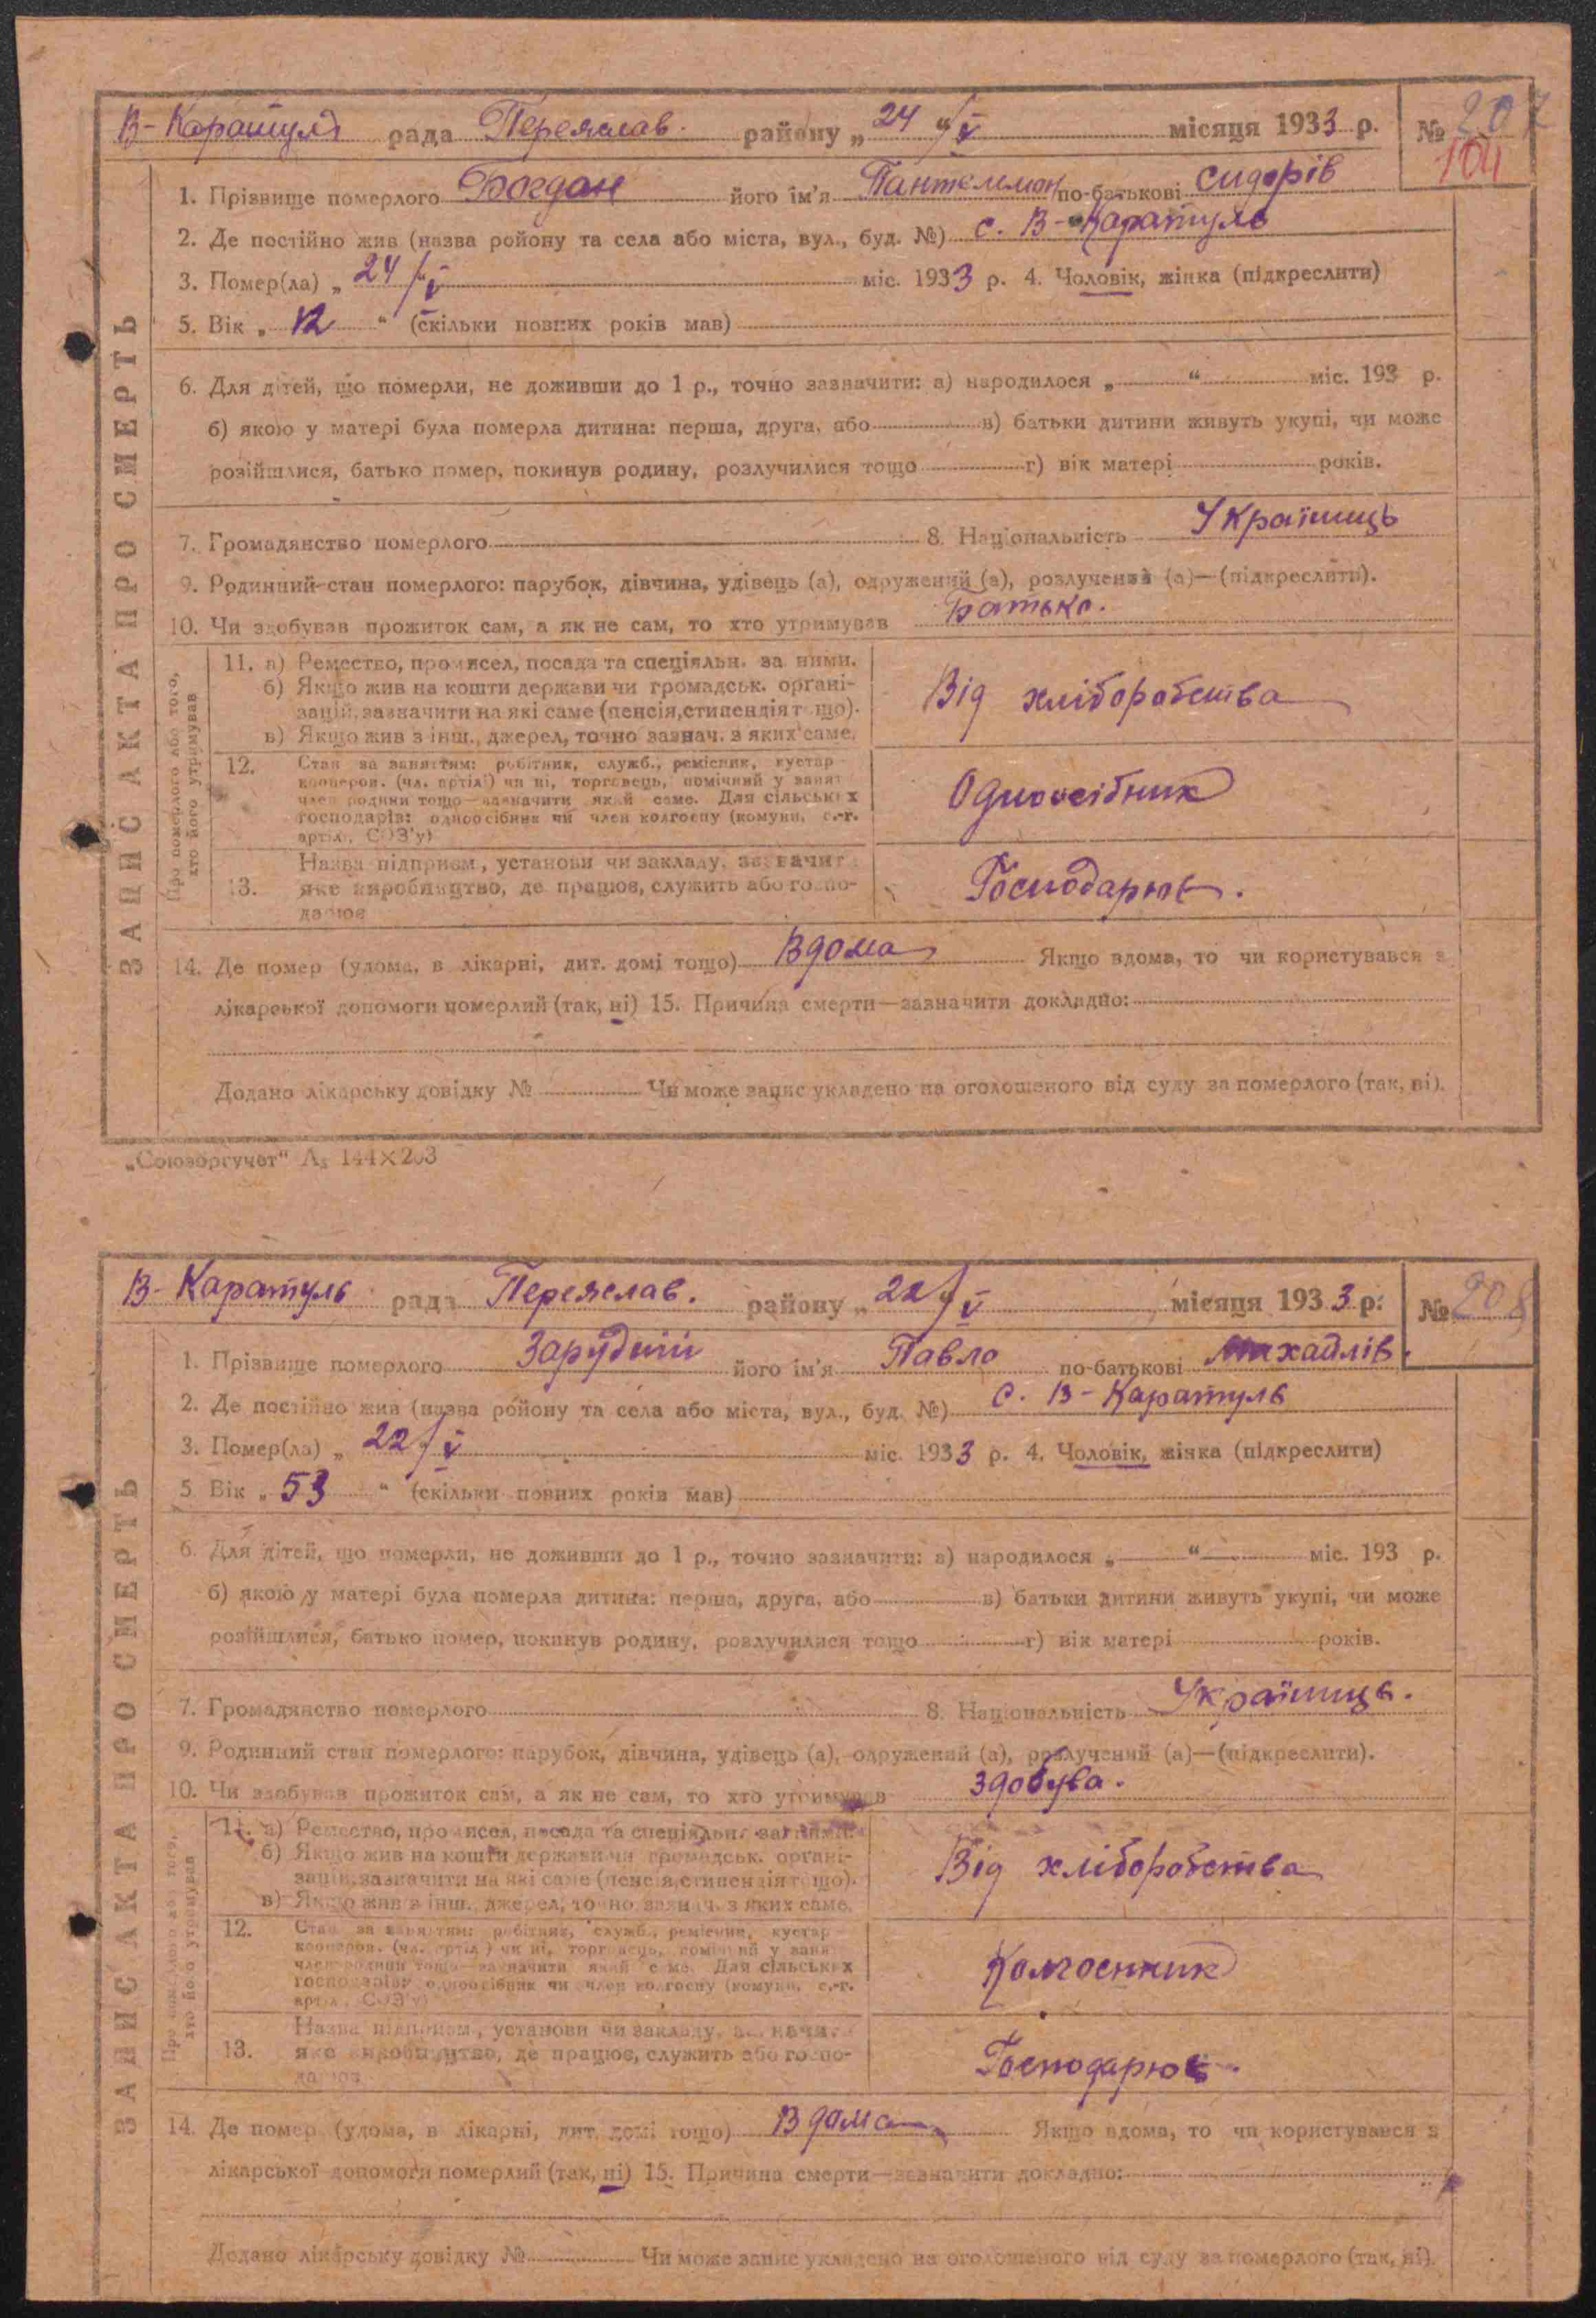 В-Каратуля рада Переяслав. району „24"/V місяця 1933 р. № 207
104
1. Прізвище померлого Богдан його ім'я Пантелемон по-батькові Сидорів
2. Де постійно жив (назва ройону та села або міста, вул., буд. №) с. В-Каратуль
3. Помер(ла) „24"/V міс. 1933 р. 4. Чоловік, жінка (підкреслити)
5. Вік „12" (скільки повних років мав)
6. Для дітей, що померли, не доживши до 1 р., точно зазначити: а) народилося „ " міс. 193 р.
б) якою у матері була померла дитина: перша, друга, або в) батьки дитини живуть укупі, чи може
розійшлися, батько помер, покинув родину, розлучилися тощо г) вік матері років.
7. Громадянство померлого 8. Національність Українець
9. Родинний стан померлого: парубок, дівчина, удівець (а), одружений (а), розлучений (а)—(підкреслити).
10. Чи здобував прожиток сам, а як не сам, то хто утримував Батько.
ЗАПИС АКТА ПРО СМЕРТЬ
Про померлого або того, хто його утримував
11. а) Ремество, промисел, посада та спеціяльн. за ними.
б) Якщо жив на кошти держави чи громадськ. органі-
зацій, зазначити на які саме (пенсія, стипендія тощо).
в) Якщо жив з інш., джерел, точно зазнач. з яких саме.
Від хліборобства
12. Стан за заняттям: робітник, служб., ремісник, кустар
кооперов. (чл. артілі) чи ні, торговець, помічний у занят
член родини тощо—зазначити який саме. Для сільських
господарів: одноосібник чи член колгоспу (комуни, с.-г.
артіл., СОЗ'у)
Одноосібник
13. Назва підприєм., установи чи закладу, зазначит
яке виробництво, де працює, служить або госпо-
дарює
Господарює.
14. Де помер (удома, в лікарні, дит. домі тощо) Вдома Якщо вдома, то чи користувався з
лікарської допомоги померлий (так, ні) 15. Причина смерти—зазначити докладно:
Додано лікарську довідку № Чи може запис укладено на оголошеного від суду за померлого (так, ні).
„Союзоргучет" А5 144×203
В-Каратуль рада Переяслав. району „22"/V місяця 1933 р. № 208
1. Прізвище померлого Зарудний його ім'я Павло по-батькові Михайлів.
2. Де постійно жив (назва ройону та села або міста, вул., буд. №) с. В-Каратуль
3. Помер(ла) „22"/V міс. 1933 р. 4. Чоловік, жінка (підкреслити)
5. Вік „53" (скільки повних років мав)
6. Для дітей, що померли, не доживши до 1 р., точно зазначити: а) народилося „ " міс. 193 р.
б) якою у матері була померла дитина: перша, друга, або в) батьки дитини живуть укупі, чи може
розійшлися, батько помер, покинув родину, розлучилися тощо г) вік матері років.
7. Громадянство померлого 8. Національність Українець.
9. Родинний стан померлого: парубок, дівчина, удівець (а), одружений (а), розлучений (а)—(підкреслити).
10. Чи здобував прожиток сам, а як не сам, то хто утримував здобува.
ЗАПИС АКТА ПРО СМЕРТЬ
Про померлого або того, хто його утримував
11. а) Ремество, промисел, посада та спеціяльн. за ними.
б) Якщо жив на кошти держави чи громадськ. органі-
зацій, зазначити на які саме (пенсія, стипендія тощо).
в) Якщо жив з інш., джерел, точно зазнач. з яких саме.
Від хліборобства
12. Стан за заняттям: робітник, служб., ремісник, кустар
кооперов. (чл. артілі) чи ні, торговець, помічний у занят
член родини тощо—зазначити який саме. Для сільських
господарів: одноосібник чи член колгоспу (комуни, с.-г.
артіл., СОЗ'у)
Колгоспник
13. Назва підприєм., установи чи закладу, зазначит
яке виробництво, де працює, служить або госпо-
дарює
Господарює.
14. Де помер (удома, в лікарні, дит. домі тощо) Вдома Якщо вдома, то чи користувався з
лікарської допомоги померлий (так, ні) 15. Причина смерти—зазначити докладно:
Додано лікарську довідку № Чи може запис укладено на оголошеного від суду за померлого (так, ні).